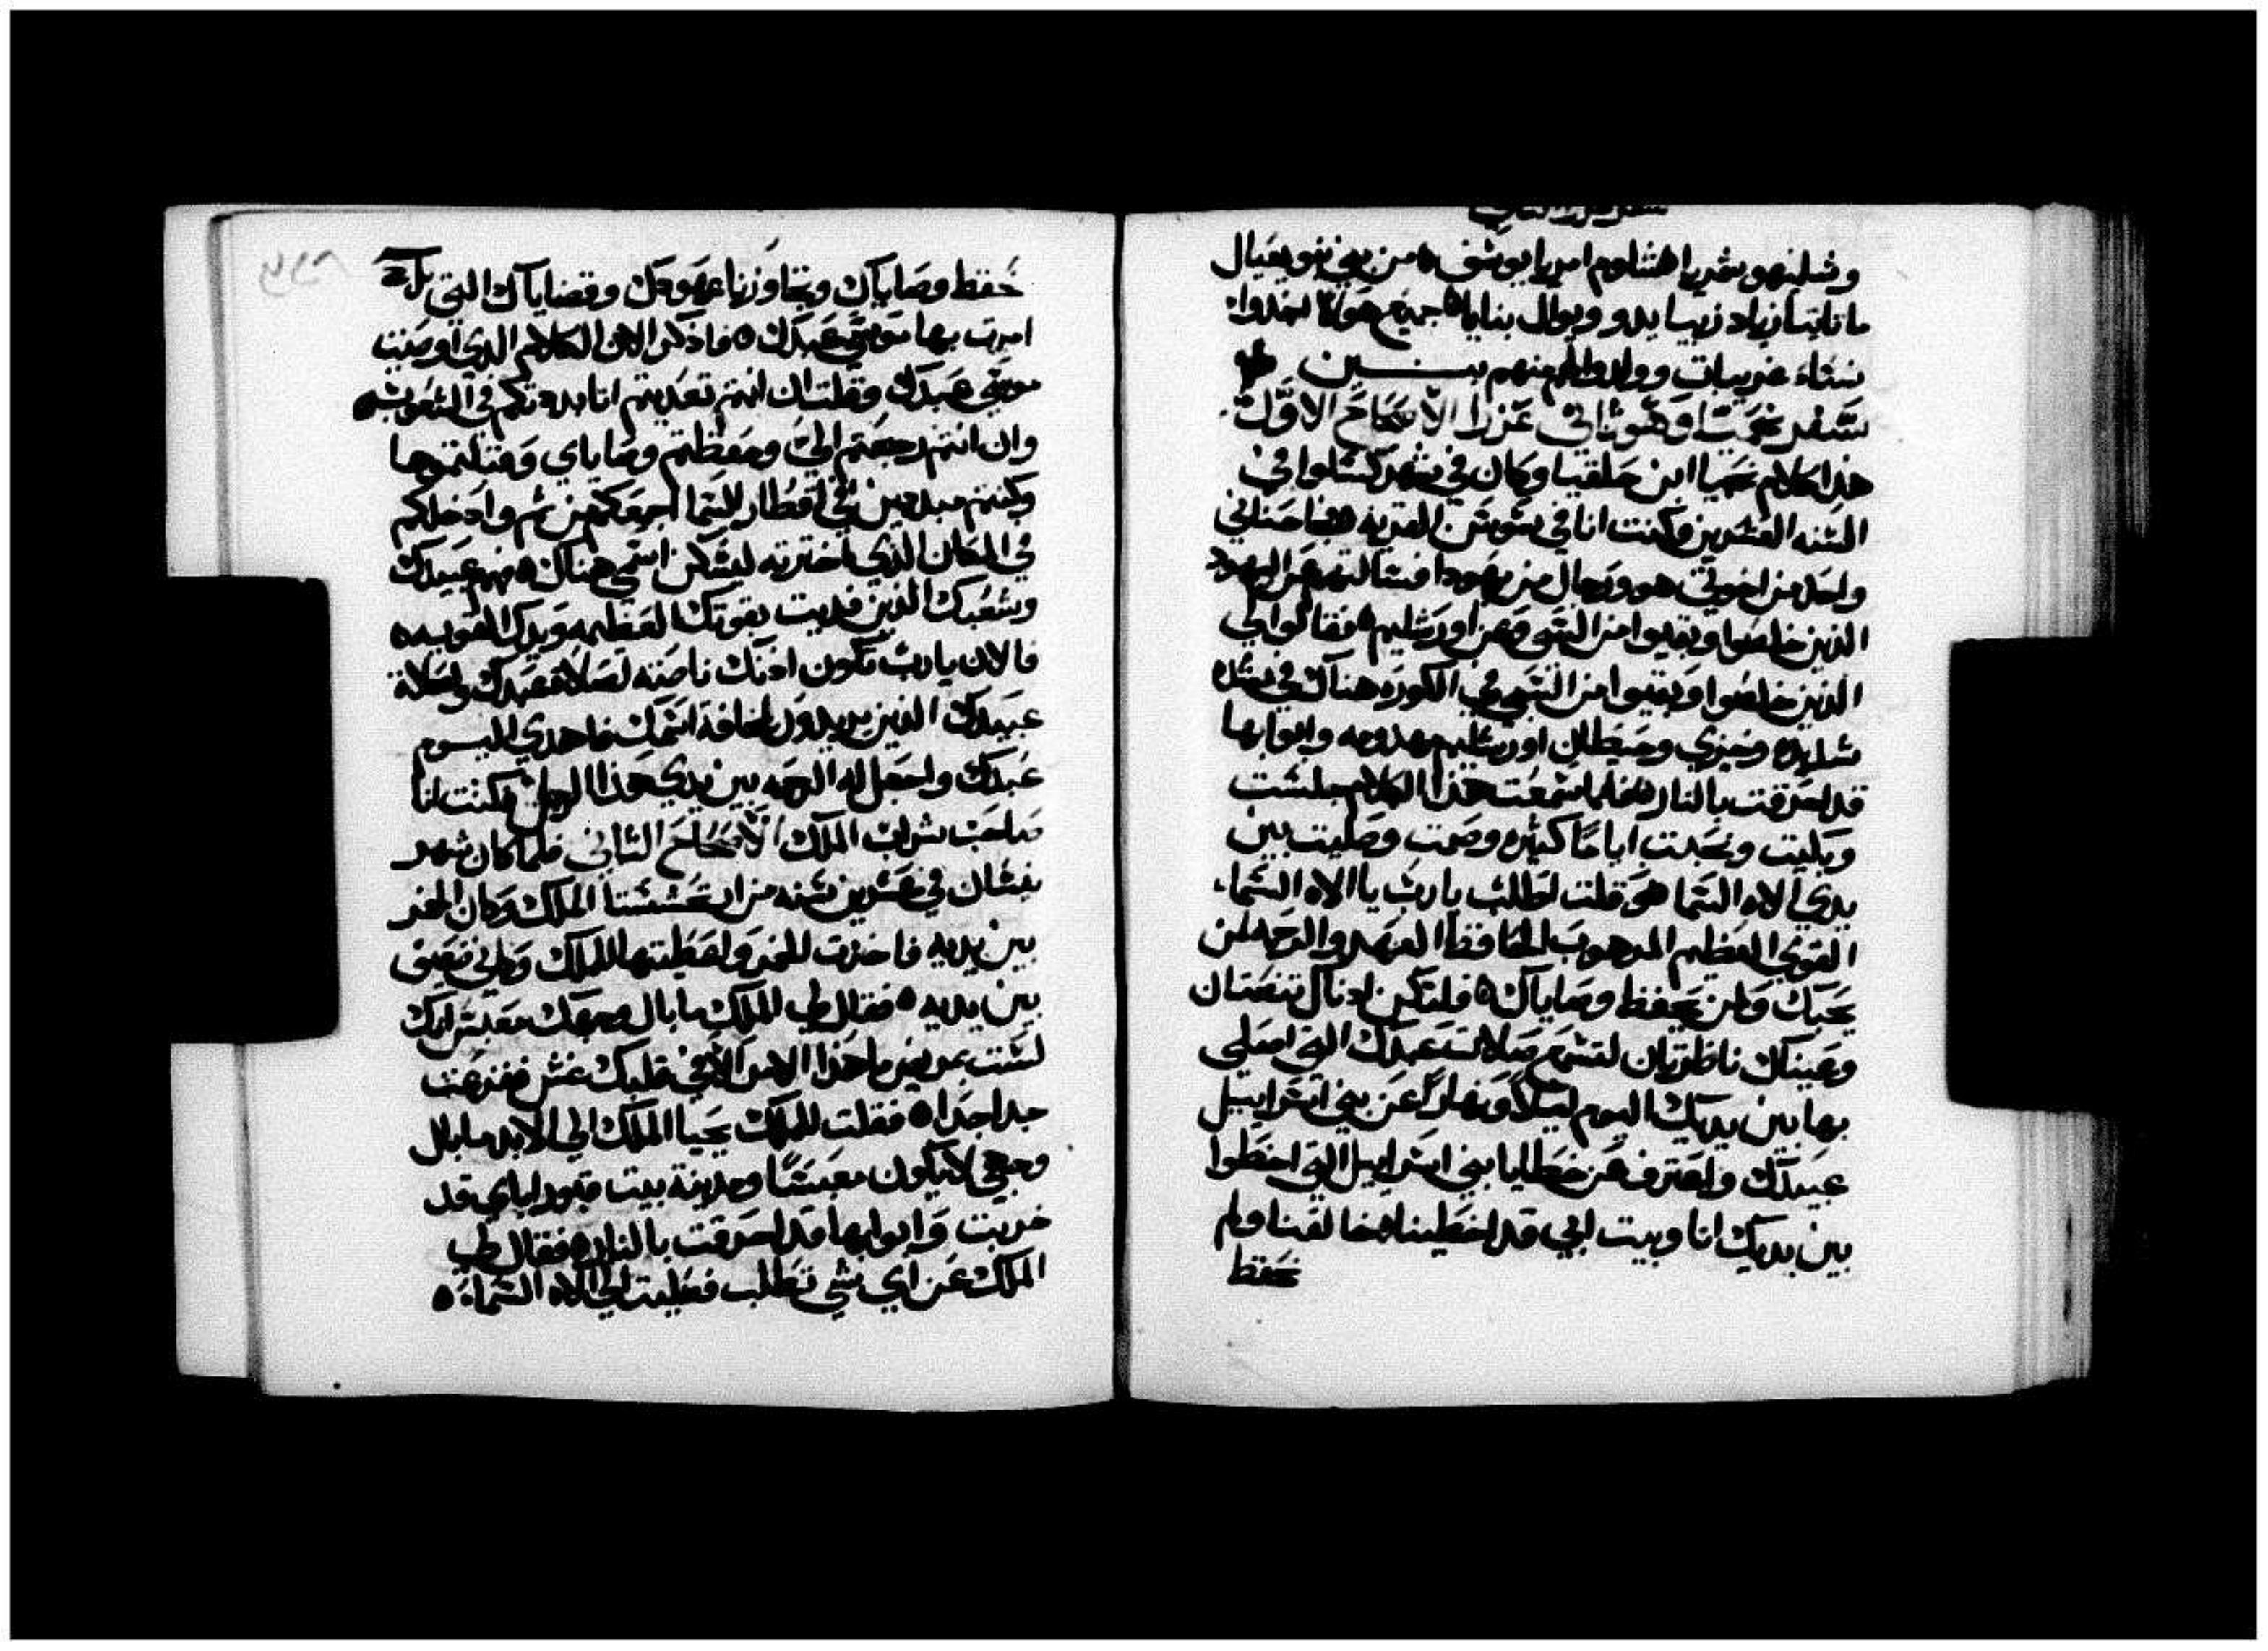 سفر عزرا الثاني
وشلنهو بشريا هشلوم امريا يوسف ٥ من بني نبو يعيال
ماثاثيا زباد زبيا يدو ويوال بنايا ٥ جميع هولا اتخدوا
نساء غريبات وولد لهم منهم بنين
سفر نحميا وهو ثاني عزرا الاصحاح الاول
هذا كلام نحميا ابن حلقيا وكان في شهر كسلوا في
السنه العشرين وكنت انا في شوشن المدينه ٥ فجا حناني
واحد من اخوتي هو ورجال من يهودا فسالتهم عن اليهود
الذين خلصوا وبقيوا من السبي وعن اورشليم ٥ فقالوا لي
الذين خلصوا وبقيوا من السبي في الكوره هناك في شده
شديده وخزي وحيطان اورشليم مهدومه وابوابها
قد احرقت بالنار ٥ فلما سمعت هذا الكلام جلست
وبكيت ونحت اياما كثيره وصمت وصليت بين
يدي الاه السما ٥ وقلت اطلب يا رب يا الاه السماء
القوي العظيم المرهوب الحافظ العهد والرحمه لمن
يحبك ولمن يحفظ وصاياك ٥ فلتكن ادناك تنصتان
وعيناك ناظرتان لتسمع صلاة عبدك التي اصلي
بها بين يديك اليوم ليلا ونهارا عن بني اسراييل
عبيدك واعترف عن خطايا بني اسراييل التي اخطوا
بين يديك انا وبيت ابي قد اخطينا ٥ خالفنا ولم
نحفظ
نحفظ وصاياك وتجاوزنا عهودك وقضاياك التي
امرت بها موسى عبدك ٥ فاذكر الان الكلام الذي اوصيت
موسى عبدك وقلت ان انتم تعديتم انا ابددكم في الشعوب ٥
وان انتم رجعتم الي وحفظتم وصاياي وقبلتموها
وكنتم مبددين في اقطار السما اجمعكم من ثم وادخلكم
في المكان الذي اخترته ليسكن اسمي هناك ٥ فهم عبيدك
وشعبك الذين فديت بقوتك العظيمه ويدك القويه ٥
فالان يا رب تكون ادنك ناصته لصلاة عبدك ولصلاة
عبيدك الذين يريدون مخافة اسمك فاهدي اليوم
عبدك واجعل له الرحمه بين يدي هذا الرجل ٥ وكنت انا
صاحب شراب الملك الاصحاح الثاني فلما كان شهر
نيسان في عشرين سنه من ارتحششتا الملك وكان الخمر
بين يديه فاخذت الخمر واعطيتها للملك
بين يديه ٥ فقال لي الملك ما بال وجهك معبس انك
لست مريض ما هذا الامر الا في قلبك غش ففزعت
جدا جدا ٥ فقلت للملك يحيا الملك الي الابد ما بال
وجهي لا يكون معبسا ومدينة بيت قبور اباي قد
خربت وابوابها قد احرقت بالنار ٥ فقال لي
الملك عن اي شي تطلب فصليت الي الاه السماء ٥